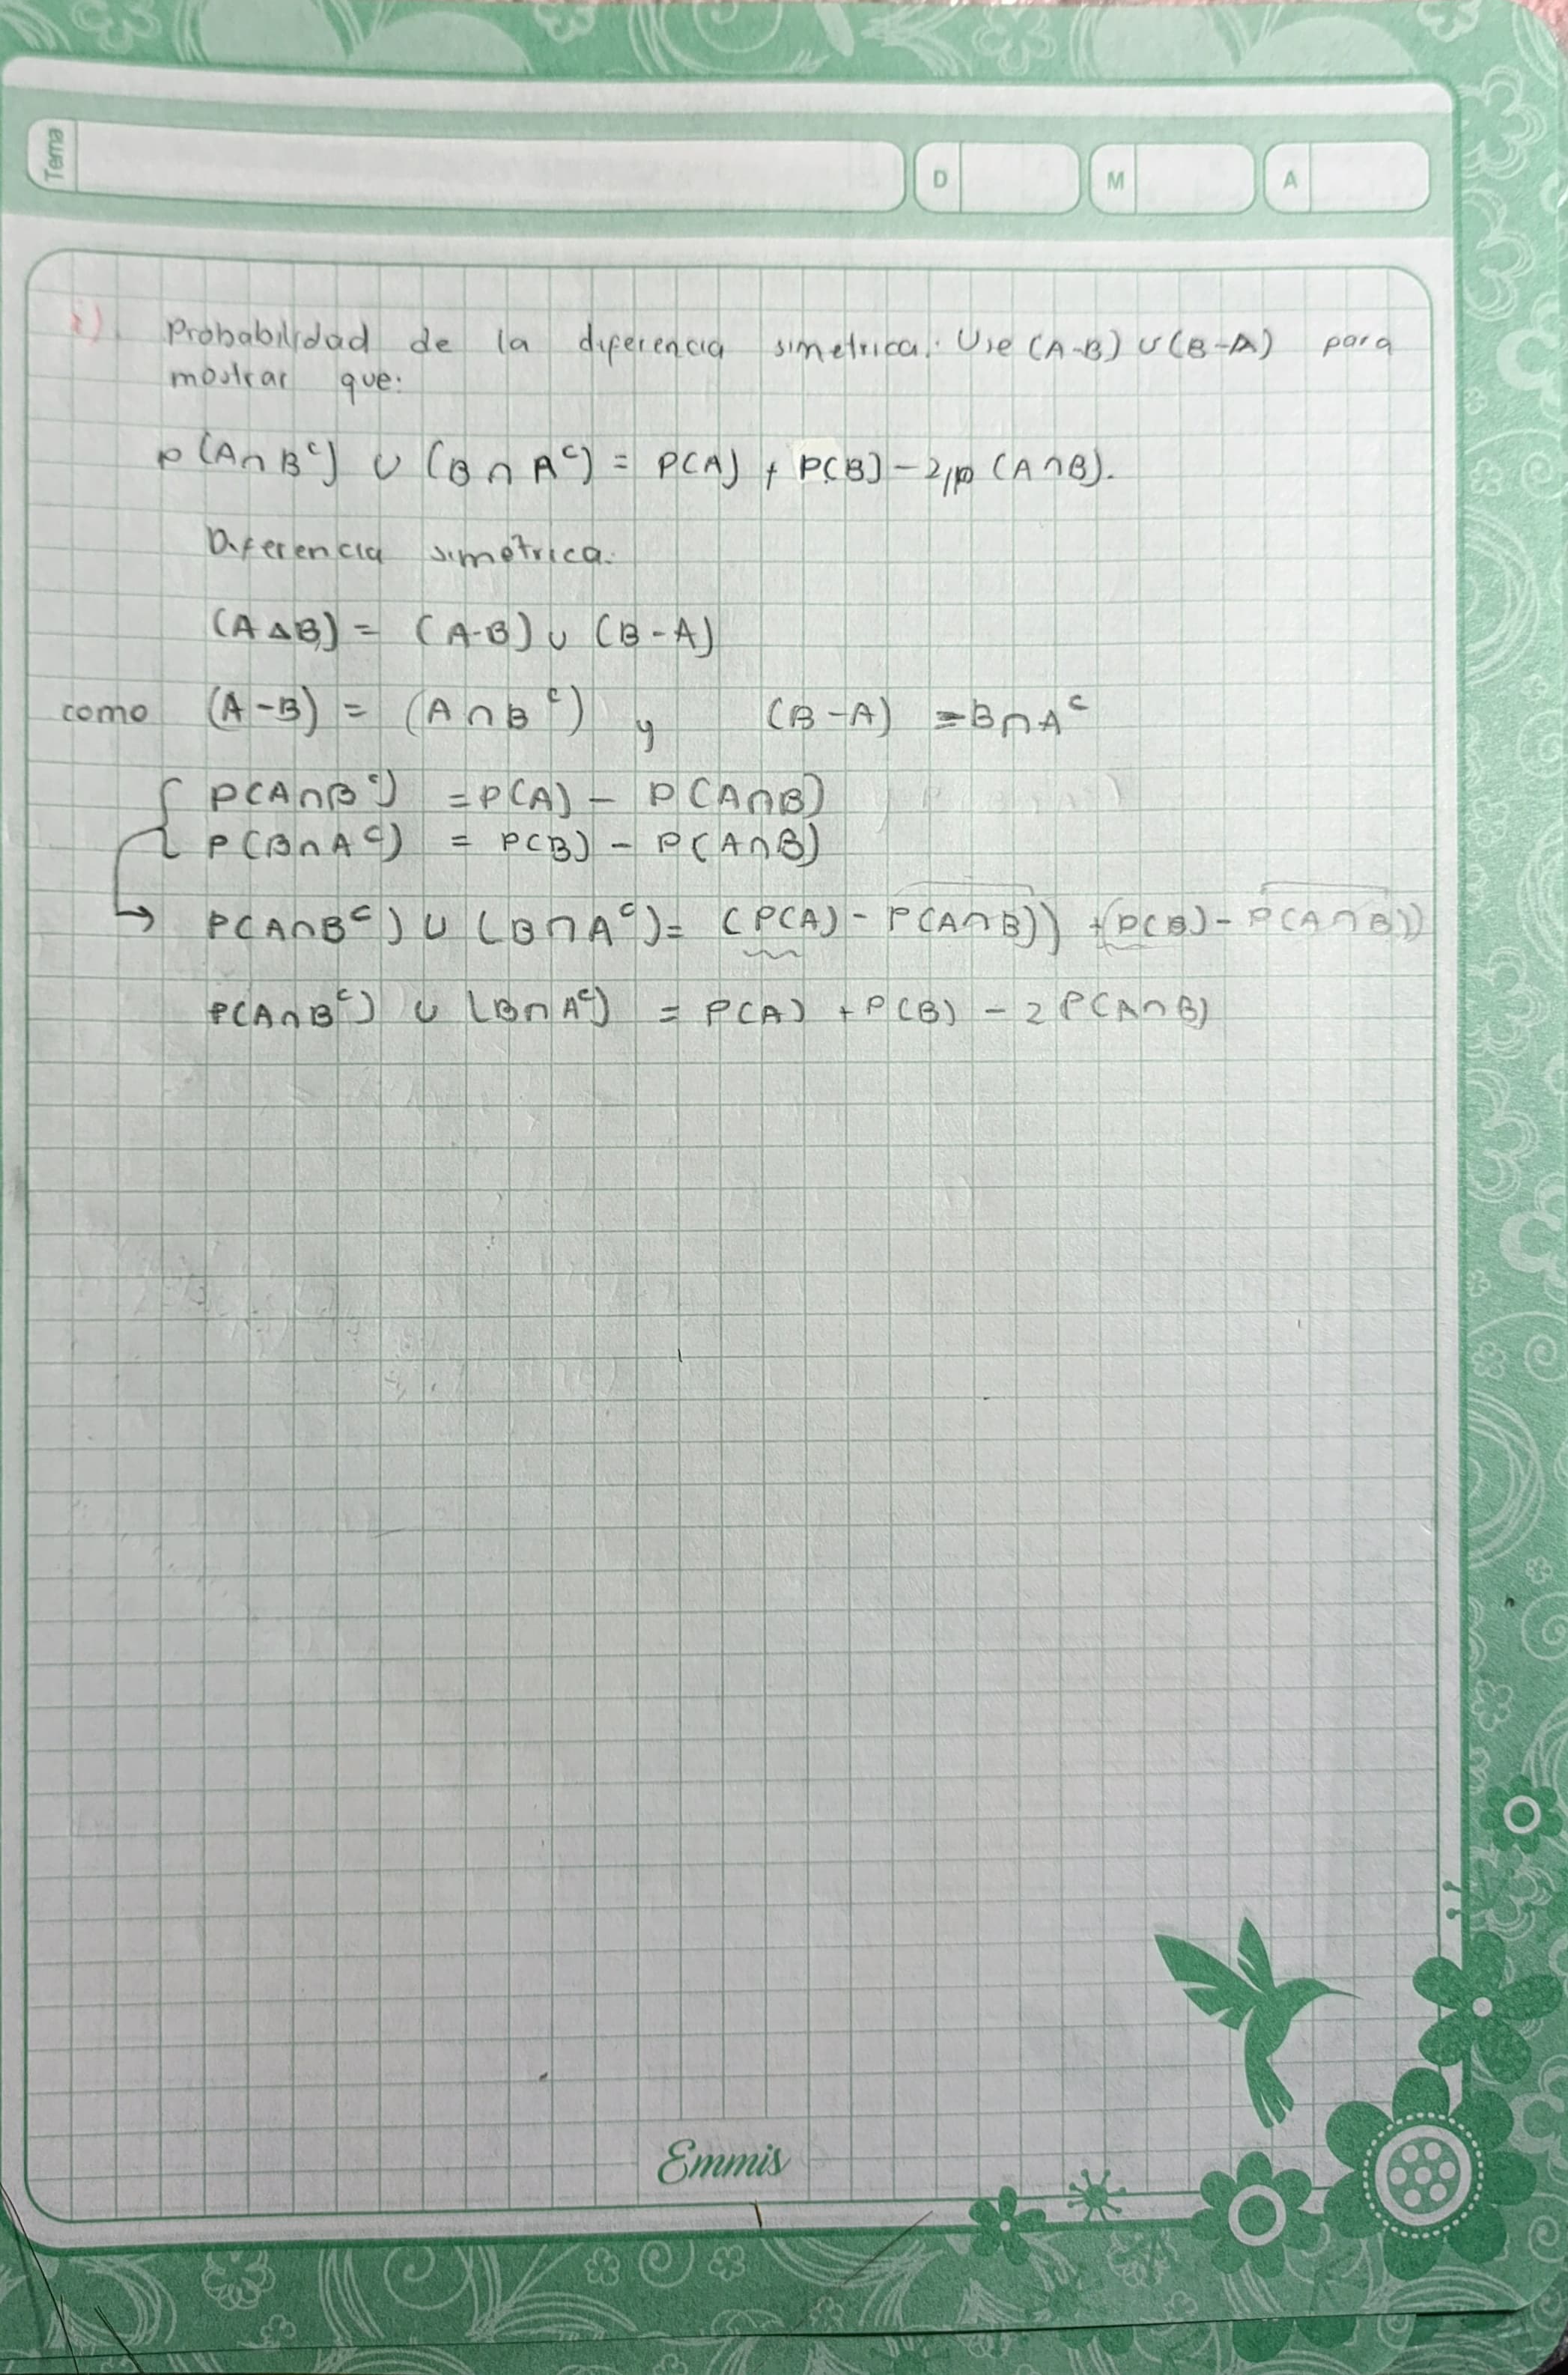 Tema
D
M
A
i). Probabilidad de la diferencia simetrica. Use (A-B) ∪ (B-A) para
mostrar que:
P(A∩Bᶜ) ∪ (B∩Aᶜ) = P(A) + P(B) - 2P(A∩B).
Diferencia simetrica.
(A△B) = (A-B) ∪ (B-A)
como (A-B) = (A∩Bᶜ) y (B-A) = B∩Aᶜ
P(A∩Bᶜ) = P(A) - P(A∩B)
P(B∩Aᶜ) = P(B) - P(A∩B)
→ P(A∩Bᶜ) ∪ (B∩Aᶜ) = (P(A) - P(A∩B)) + (P(B) - P(A∩B))
P(A∩Bᶜ) ∪ (B∩Aᶜ) = P(A) + P(B) - 2P(A∩B)
Emmis